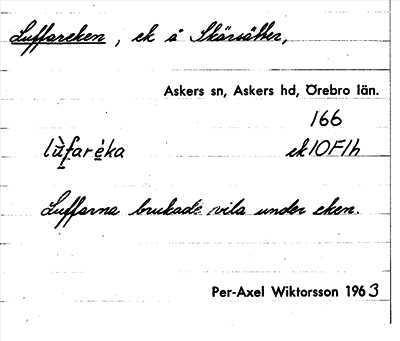 Luffareken, ek å Skärsätter,
Askers sn, Askers hd, Örebro län.
166
lùfaréka ek 10F1h
Luffarna brukade vila under eken.
Per-Axel Wiktorsson 1963